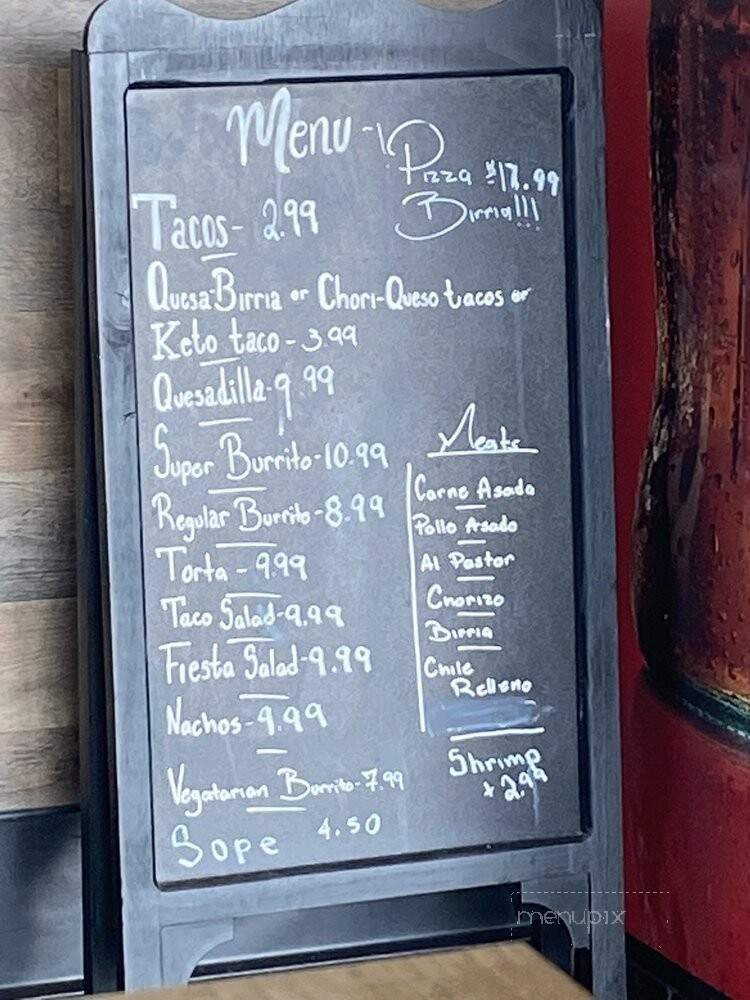 Menu
Pizza $17.99
Birria!!!
Tacos - 2.99
Quesa-Birria or Chori-Queso tacos or
Keto taco - 3.99
Quesadilla - 9.99
Super Burrito - 10.99
Regular Burrito - 8.99
Torta - 9.99
Taco Salad - 9.99
Fiesta Salad - 9.99
Nachos - 9.99
Vegatarian Burrito - 7.99
Sope 4.50
Meats
Carne Asada
Pollo Asado
Al Pastor
Chorizo
Birria
Chile
Relleno
Shrimp
+ 2.99
menupix